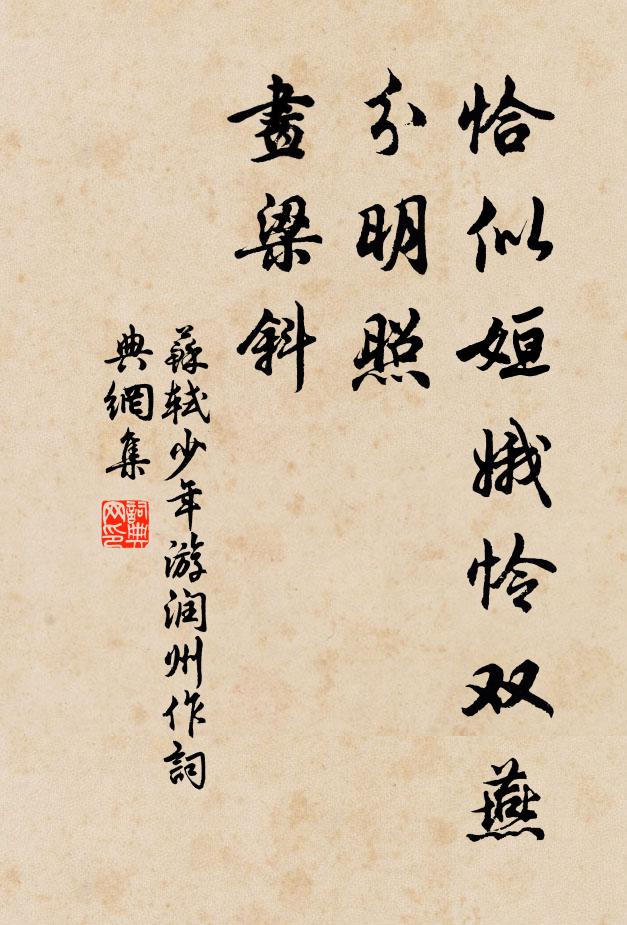 恰似姮娥怜双燕
分明照
畫梁斜
蘇軾少年游润州作詞
典網集
詞典网印